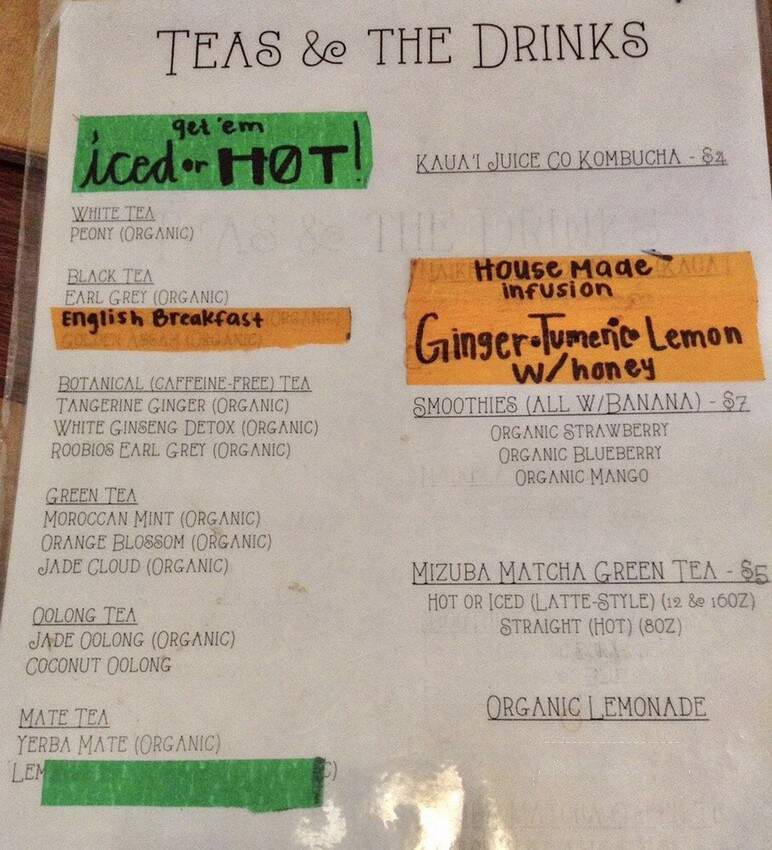 TEAS & THE DRINKS
get 'em
iced or HOT!
WHITE TEA
PEONY (ORGANIC)
BLACK TEA
EARL GREY (ORGANIC)
English Breakfast
GOLDEN ASSAM (ORGANIC)
BOTANICAL (CAFFEINE-FREE) TEA
TANGERINE GINGER (ORGANIC)
WHITE GINSENG DETOX (ORGANIC)
ROOBIOS EARL GREY (ORGANIC)
GREEN TEA
MOROCCAN MINT (ORGANIC)
ORANGE BLOSSOM (ORGANIC)
JADE CLOUD (ORGANIC)
OOLONG TEA
JADE OOLONG (ORGANIC)
COCONUT OOLONG
MATE TEA
YERBA MATE (ORGANIC)
LEM
KAUA'I JUICE CO KOMBUCHA - $4
House Made
infusion
Ginger•Tumeric• Lemon
w/honey
SMOOTHIES (ALL W/BANANA) - $7
ORGANIC STRAWBERRY
ORGANIC BLUEBERRY
ORGANIC MANGO
MIZUBA MATCHA GREEN TEA - $5
HOT OR ICED (LATTE-STYLE) (12 & 16OZ)
STRAIGHT (HOT) (8OZ)
ORGANIC LEMONADE